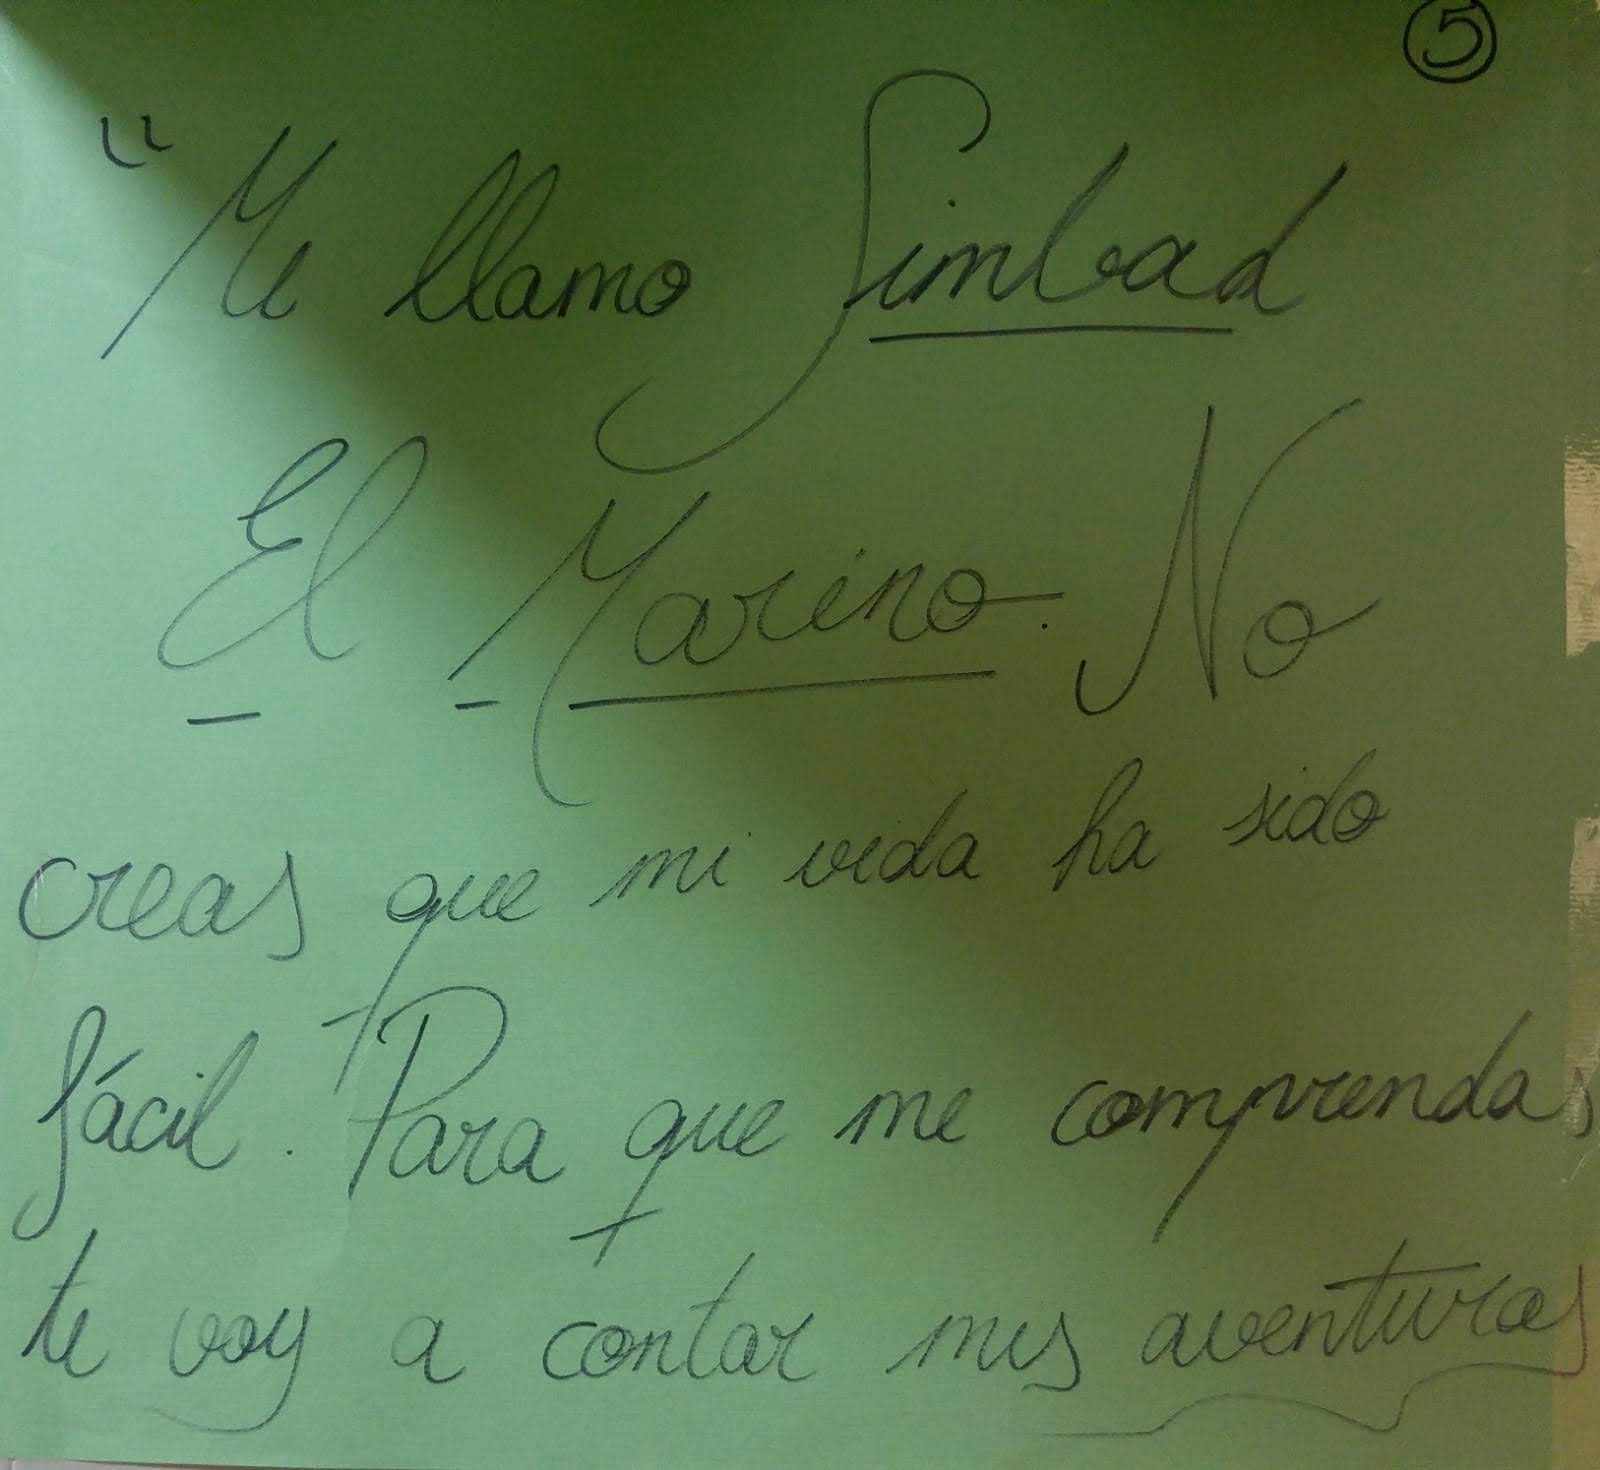 5
"Me llamo Simbad
El Marino. No
creas que mi vida ha sido
fácil. Para que me comprendas
te voy a contar mis aventuras